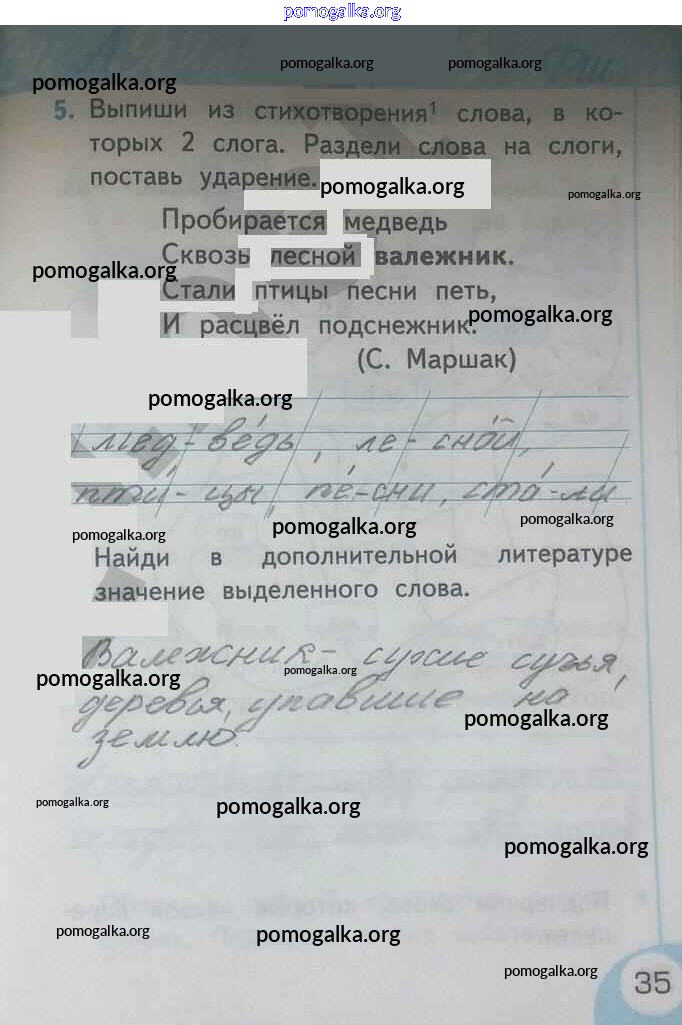 pomogalka.org
pomogalka.org pomogalka.org
pomogalka.org
5. Выпиши из стихотворения¹ слова, в ко-
торых 2 слога. Раздели слова на слоги,
поставь ударение.
pomogalka.org
pomogalka.org
Пробирается медведь
Сквозь лесной валежник.
pomogalka.org
Стали птицы песни петь,
pomogalka.org
И расцвёл подснежник.
(С. Маршак)
pomogalka.org
мед-ве́дь, ле-сно́й,
пти́-цы, пе́-сни, ста́-ли
pomogalka.org
pomogalka.org
pomogalka.org
Найди в дополнительной литературе
значение выделенного слова.
Валежник - сухие сучья,
pomogalka.org
pomogalka.org
деревья, упавшие на
pomogalka.org
землю.
pomogalka.org
pomogalka.org
pomogalka.org
pomogalka.org
pomogalka.org
pomogalka.org
35